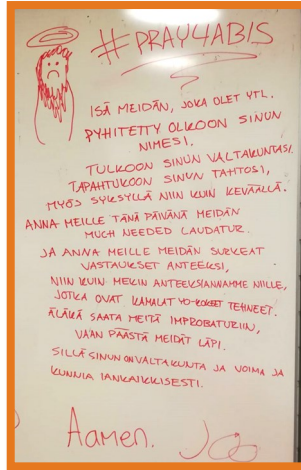 #PRAY4ABIS
ISÄ MEIDÄN, JOKA OLET YTL.
PYHITETTY OLKOON SINUN
NIMESI.
TULKOON SINUN VALTAKUNTASI.
TAPAHTUKOON SINUN TAHTOSI,
MYÖS SYKSYLLÄ NIIN KUIN KEVÄÄLLÄ.
ANNA MEILLE TÄNÄ PÄIVÄNÄ MEIDÄN
MUCH NEEDED LAUDATUR.
JA ANNA MEILLE MEIDÄN SURKEAT
VASTAUKSET ANTEEKSI,
NIIN KUIN MEKIN ANTEEKSIANNAMME NIILLE,
JOTKA OVAT KAMALAT YO-KOKEET TEHNEET.
ÄLÄKÄ SAATA MEITÄ IMPROBATURIIN,
VAAN PÄÄSTÄ MEIDÄT LÄPI.
SILLÄ SINUN ON VALTAKUNTA JA VOIMA JA
KUNNIA IANKAIKKISESTI.
Aamen.